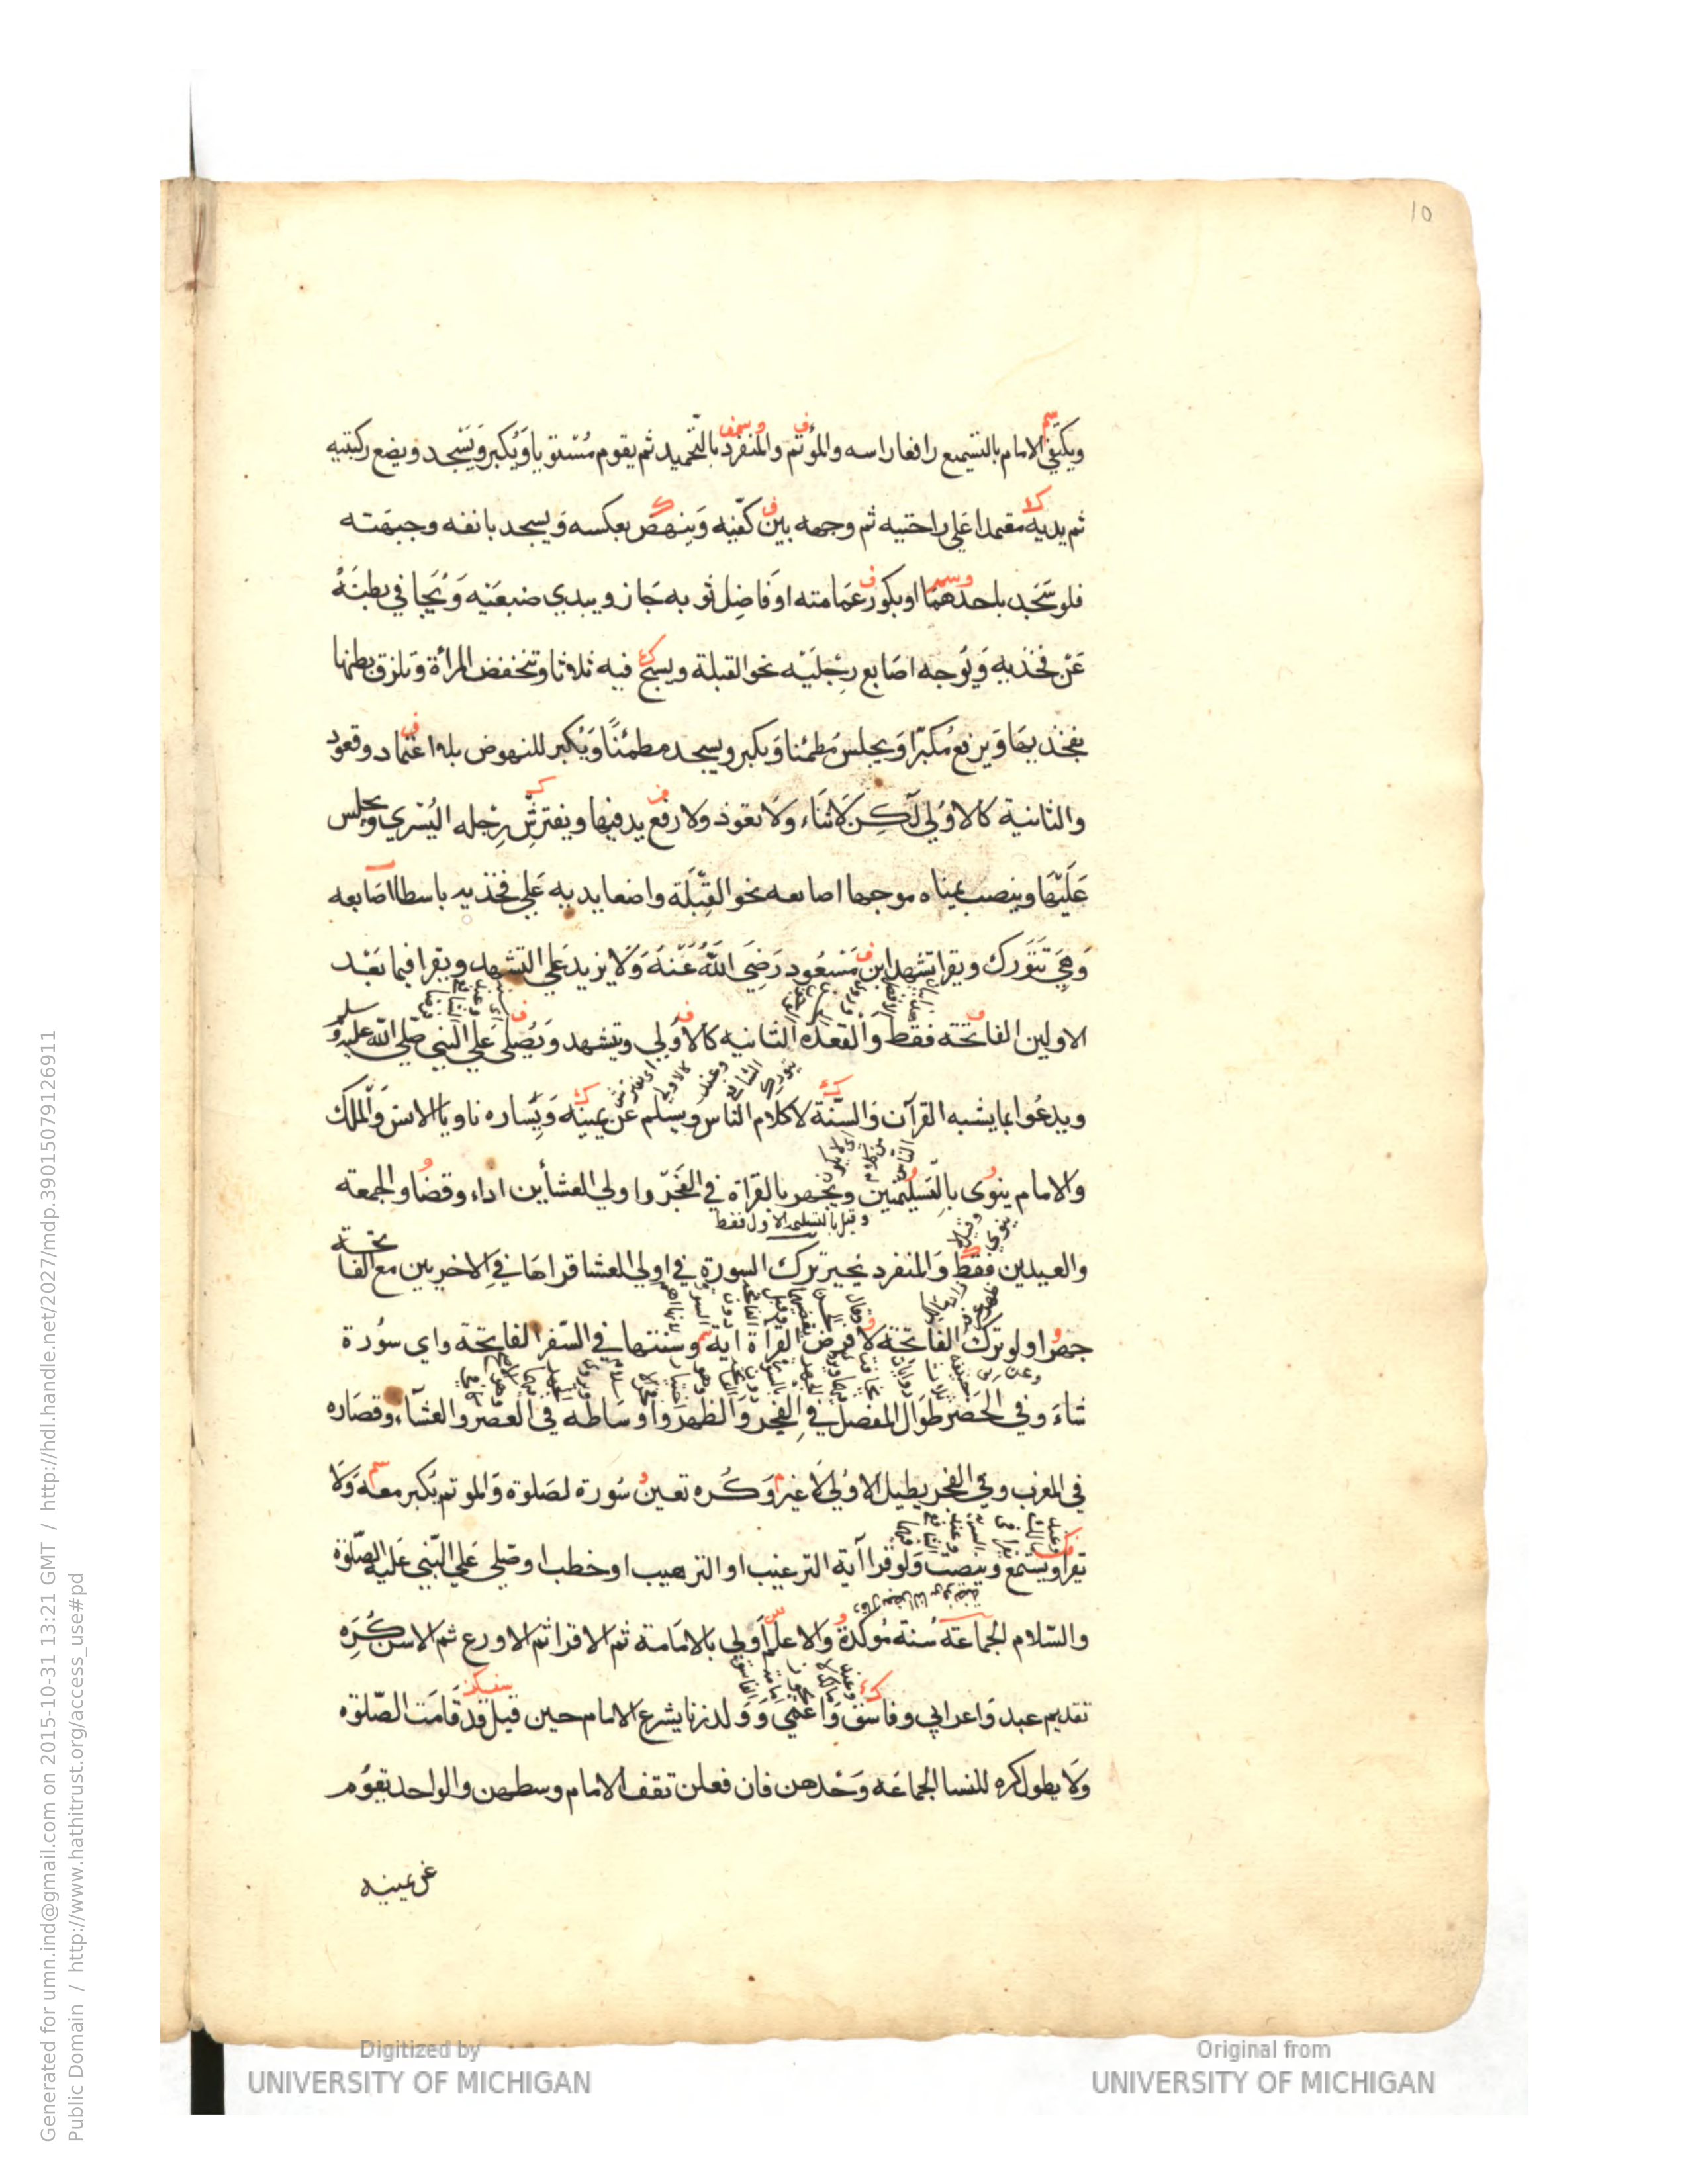 10
ويكتفي الامام بالتسميع رافعا راسه والمؤتم والمنفرد بالتحميد ثم يقوم مستويا ويكبر ويسجد ويضع ركبتيه
ثم يديه معتمدا علي راحتيه ثم وجهه بين كفيه وينهض بعكسه ويسجد بانفه وجبهته
فلو سجد باحدهما او بكور عمامته او فاضل ثوبه جاز ويبدي ضبعيه ويجافي بطنه
عن فخذيه ويوجه اصابع رجليه نحو القبلة ويسبح فيه ثلاثا وتنخفض المرأة وتلزق بطنها
بفخذيها ويرفع مكبرا ويجلس مطمئنا ويكبر ويسجد مطمئنا ويكبر للنهوض بلا اعتماد وقعود
والثانية كالاولي لكن لا ثناء ولا تعوذ ولا رفع يد فيها ويفترش رجله اليسري ويجلس
عليها وينصب يمناه موجها اصابعه نحو القبلة واضعا يديه علي فخذيه باسطا اصابعه
وهي تتورك ويقرا تشهد ابن مسعود رضي الله عنه ولا يزيد علي التشهد ويقرا فيما بعد
الاولين الفاتحة فقط والقعدة الثانيه كالاولي ويتشهد ويصلي علي النبي صلي الله عليه وسلم
ويدعوا بما يشبه القرآن والسنة لا كلام الناس ويسلم عن يمينه ويساره ناويا الانس والملك
والامام ينوى بالتسليمتين ويجهر بالقراة في الفجر واولي العشأين اداء وقضا والجمعة
وقيل بالتسليمة الاول فقط
والعيدين فقط والمنفرد يخير ترك السورة في اولي العشا قراها في الاخريين مع الفاتحة
جهرا ولو ترك الفاتحة لا فرض القراة اية وسنتها في السفر الفاتحة واي سورة
شاء وفي الحضر طوال المفصل في الفجر والظهر واوساطه في العصر والعشآء وقصاره
في المغرب وفي الفجر يطيل الاولي لا غير وكره تعين سورة لصلوة والموتم يكبر معه ولا
يقرا ويستمع وينصت ولو قرا آية الترغيب او الترهيب او خطب او صلي علي النبي عليه الصلوة
والسلام الجماعة سنة مؤكدة والاعلم اولي بالامامة ثم الاقرا ثم الاورع ثم الاسن كره
تقديم عبد واعرابي وفاسق واعمي وولد زنا يشرع الامام حين قيل قد قامت الصلوة
ولا يطول كره للنسا الجماعه وحدهن فان فعلن تقف الامام وسطهن والواحد يقوم
عن يمينه
Generated for umn.ind@gmail.com on 2015-10-31 13:21 GMT / http://hdl.handle.net/2027/mdp.39015079126911
Public Domain / http://www.hathitrust.org/access_use#pd
Digitized by
UNIVERSITY OF MICHIGAN
Original from
UNIVERSITY OF MICHIGAN